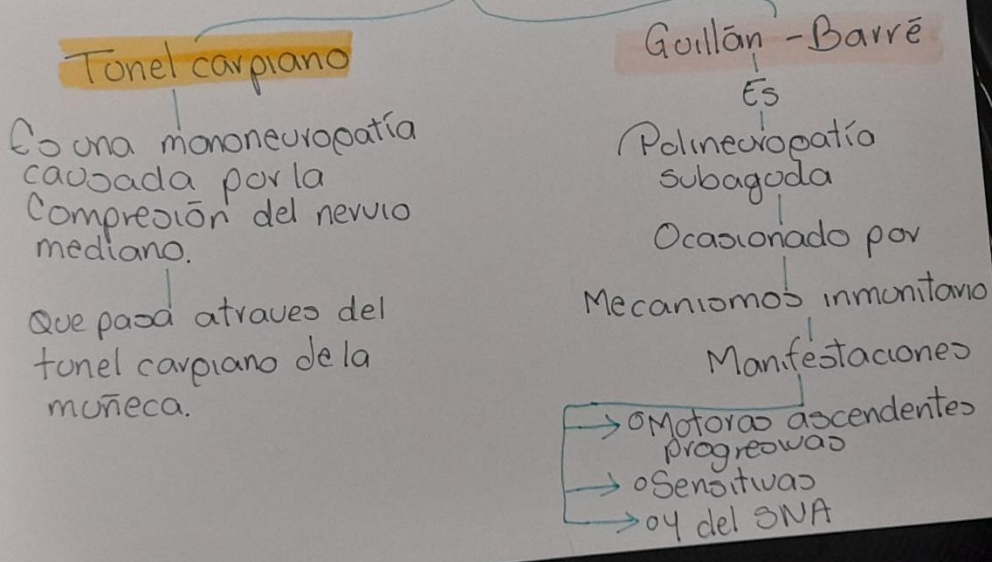 Tunel carpiano
Es una mononeuropatía
causada por la
Compresión del nervio
mediano.
Que pasa atraves del
tunel carpiano de la
muñeca.
Guillán-Barré
Es
Polineuropatía
subaguda
Ocasionado por
Mecanismos inmunitario
Manifestaciones
Motoras ascendentes
progresivas
Sensitivas
y del SNA